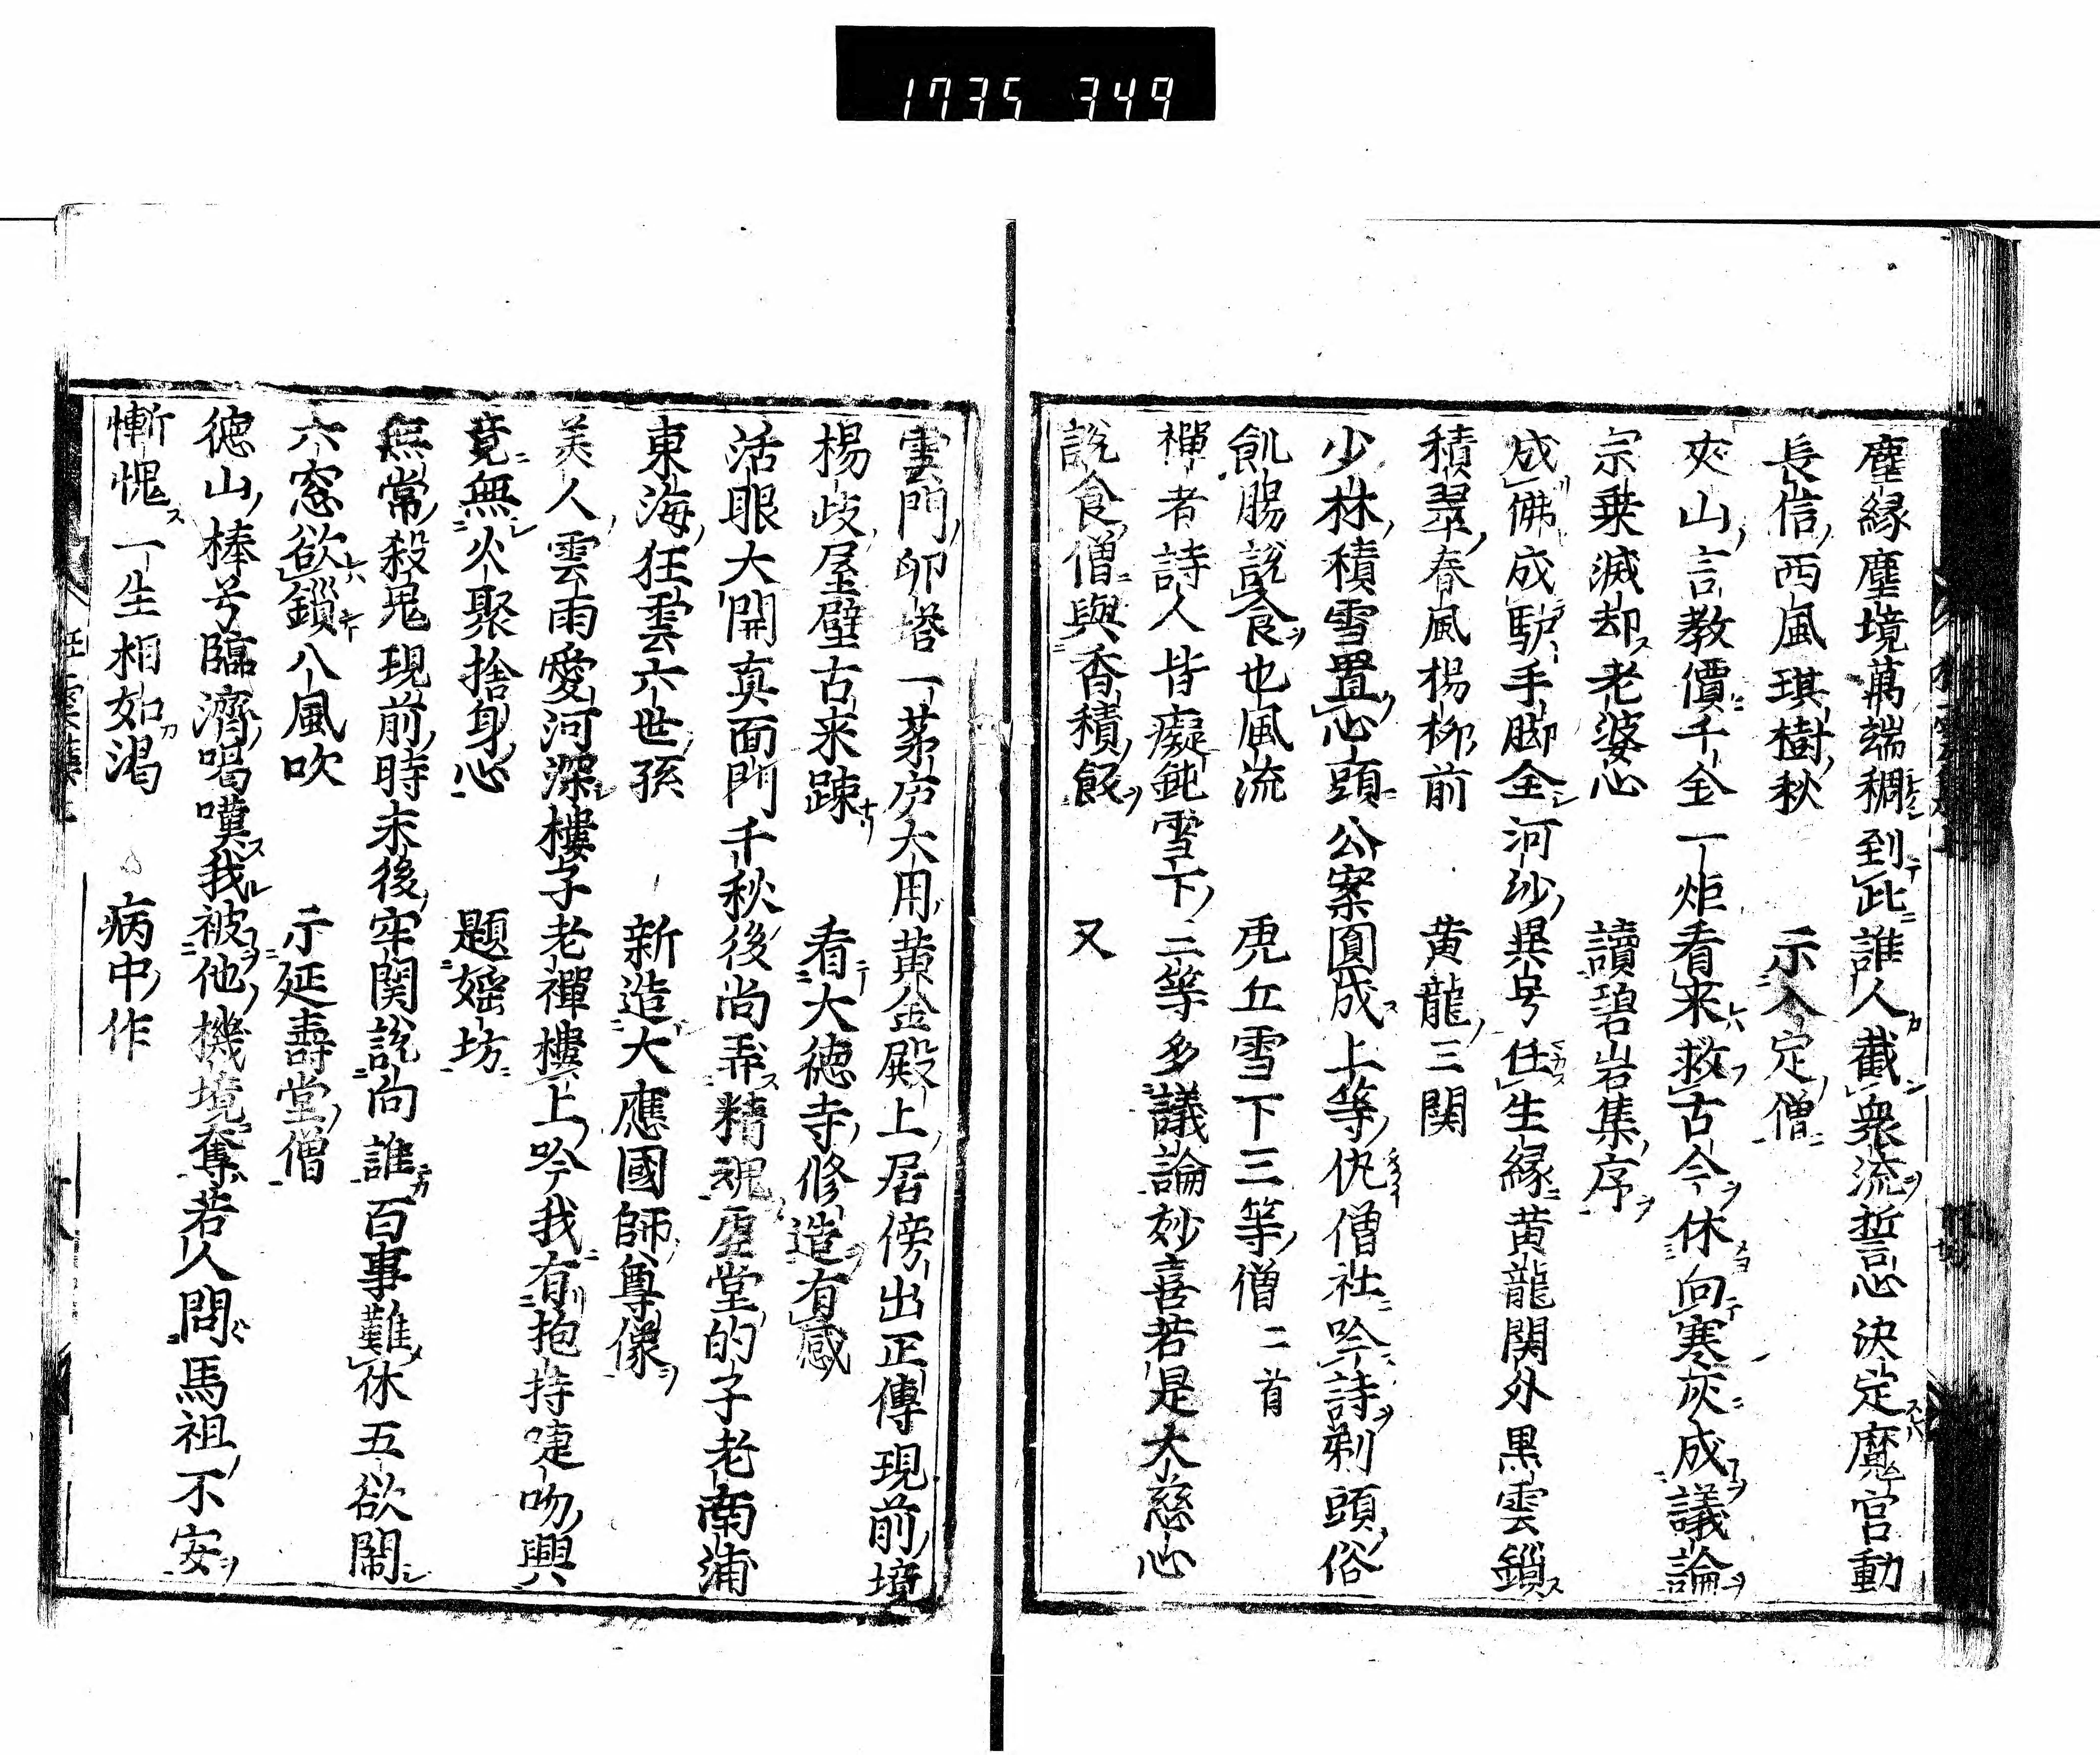 1735 349
塵縁塵境萬端稠到此誰人截衆流誓心決定魔宮動
長信西風琪樹秋　示入定僧
夾山言教價千金一炬看来救古今休向寒灰成議論
宗乗滅却老婆心　讀碧岩集序
成佛成馿手脚全河沙異号任生縁黄龍関外黒雲鎖
積翠春風楊柳前　黄龍三関
少林積雪置心頭公案圓成上等仇僧社吟詩剃頭俗
飢腸説食也風流　虎丘雪下三等僧二首
禪者詩人皆癡鈍雪下二等多議論妙喜若是大慈心
説食僧與香積飯　又
雲門卵塔一茅庐大用黄金殿上居傍出正傳現前境
楊歧屋壁古来踈　看大徳寺修造有感
活眼大開真面門千秋後尚弄精魂虚堂的子老南浦
東海狂雲六世孫　新造大應國師尊像
美人雲雨愛河深樓子老禪樓上吟我有抱持啑吻興
竟無火聚捨身心　題婬坊
無常殺鬼現前時末後牢関説向誰百事難休五欲閙
六窓欲鎖八風吹　示延壽堂僧
徳山棒兮臨濟喝嘆我被他機境奪若人問馬祖不安
慚愧一生相如渇　病中作